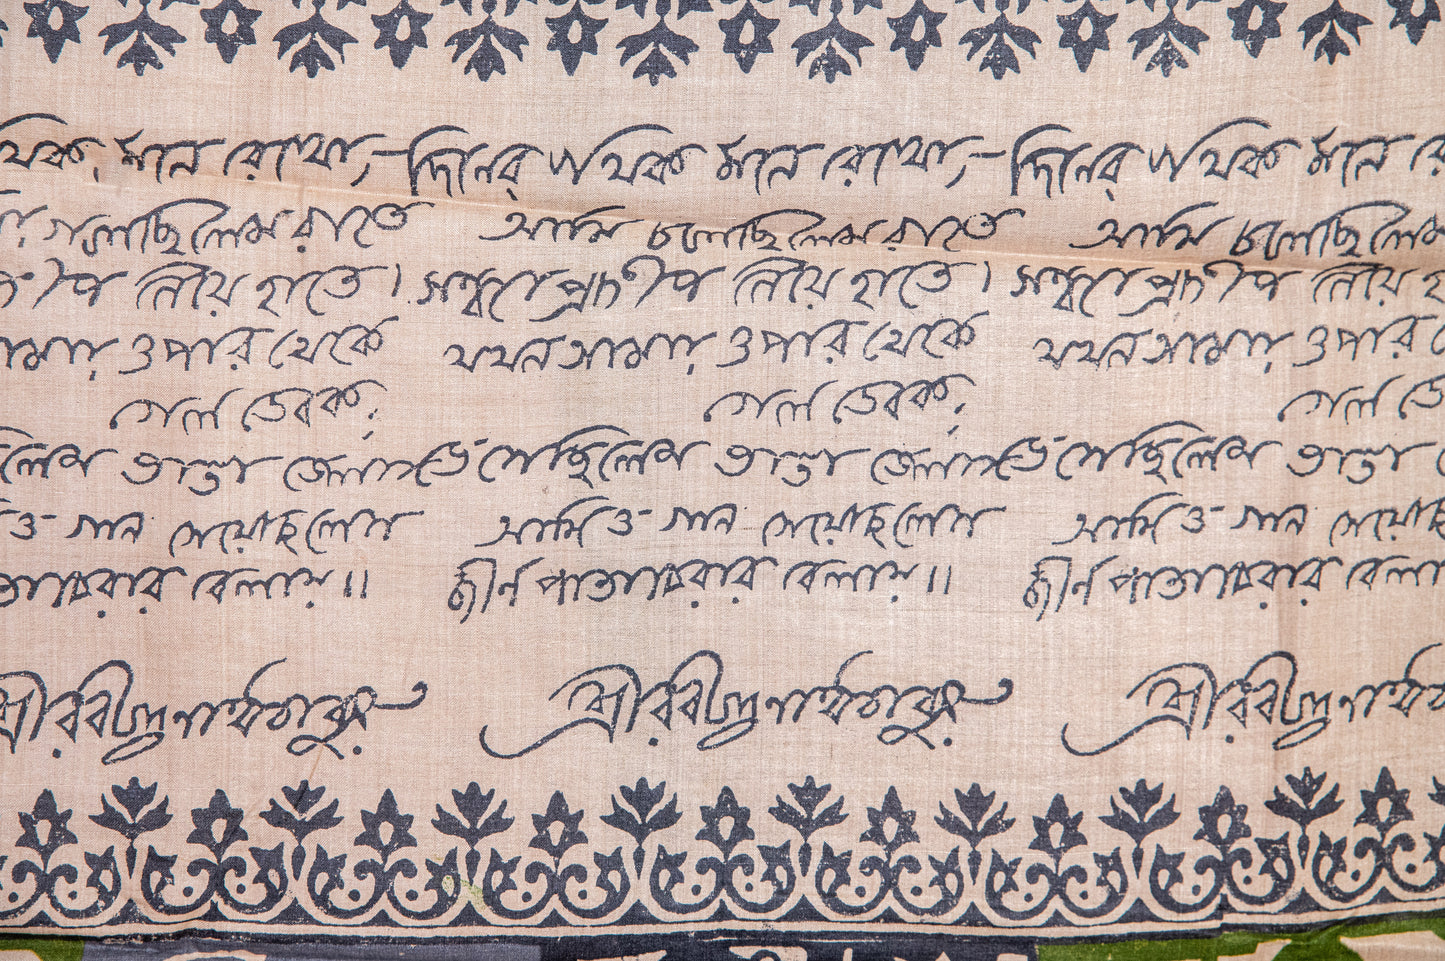 থিক মনে রেখো,— দিনের পথিক মনে রেখো,— দিনের পথিক মনে রে
চলেছিলেম রাতে আমি চলেছিলেম রাতে আমি চলেছিলেম
প নিয়ে হাতে। সন্ধ্যাপ্রদীপ নিয়ে হাতে। সন্ধ্যাপ্রদীপ নিয়ে হ
আমায় ওপার থেকে যখন আমায় ওপার থেকে যখন আমায় ওপার
গেল ডেকে, গেল ডেকে, গেল ডে
ছিলেম ভাঙা ভেলায় ভেসেছিলেম ভাঙা ভেলায় ভেসেছিলেম ভাঙা
ও গান গেয়েছিলেম আমিও গান গেয়েছিলেম আমিও গান গেয়েছি
তাঝরার বেলায়॥ জীর্ণ পাতাঝরার বেলায়॥ জীর্ণ পাতাঝরার বেলা
শ্রীরবীন্দ্রনাথ ঠাকুর শ্রীরবীন্দ্রনাথ ঠাকুর শ্রীরবীন্দ্রনাথ